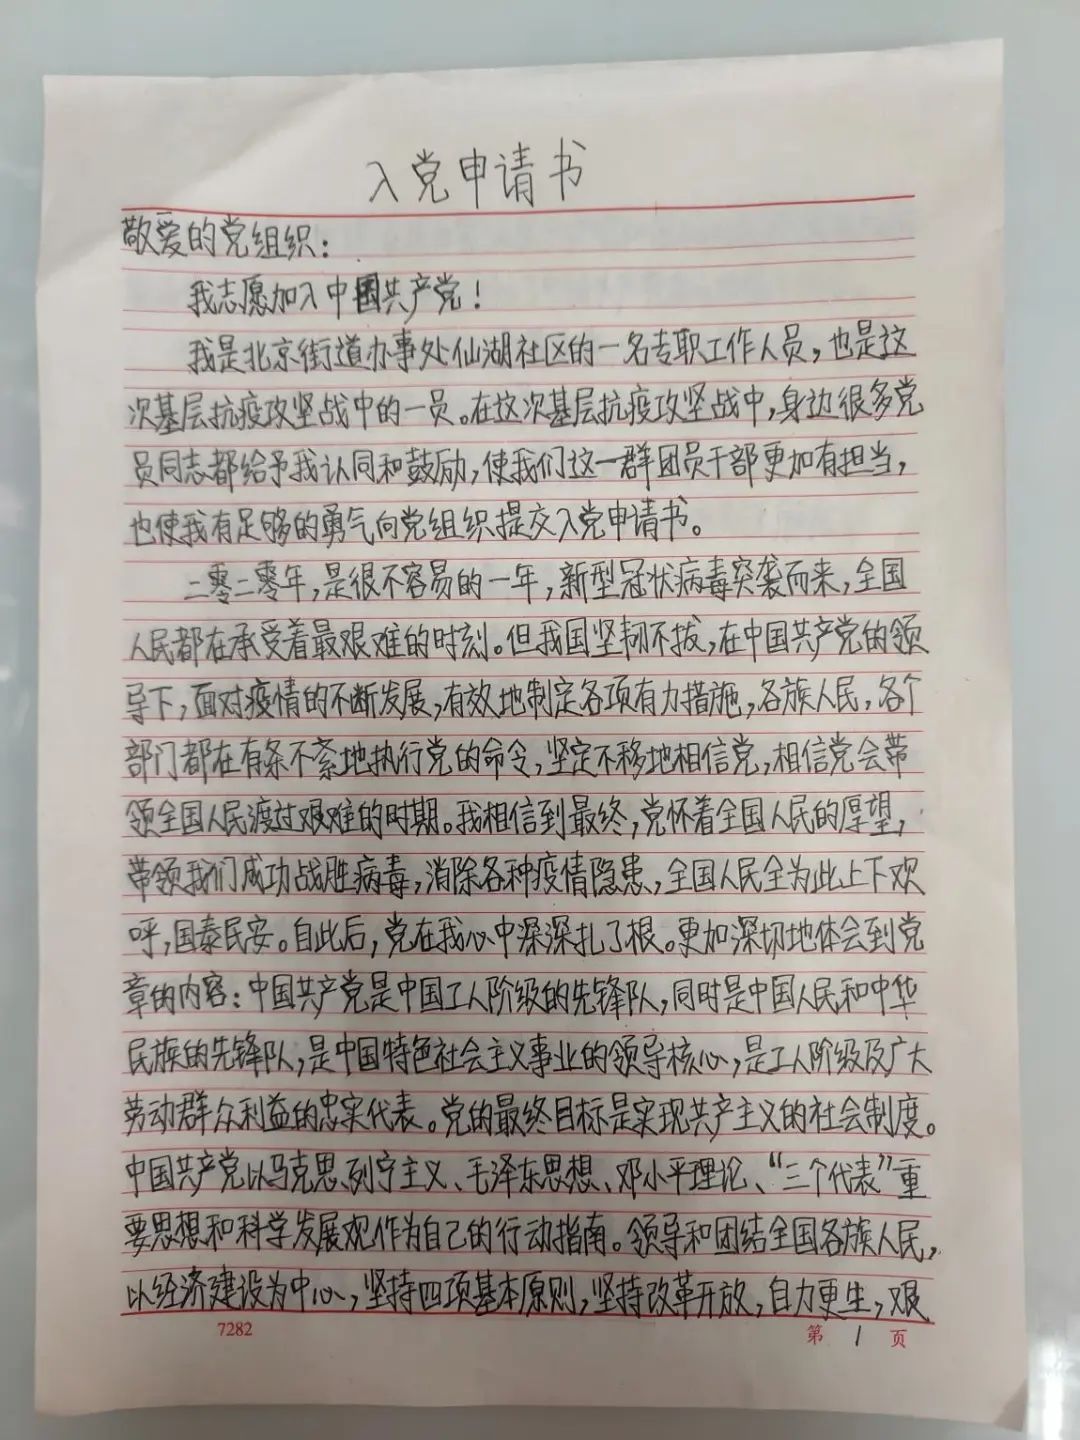 入党申请书
敬爱的党组织：
我志愿加入中国共产党！
我是北京街道办事处仙湖社区的一名专职工作人员，也是这
次基层抗疫攻坚战中的一员。在这次基层抗疫攻坚战中，身边很多党
员同志都给予我认同和鼓励，使我们这一群团员干部更加有担当，
也使我有足够的勇气向党组织提交入党申请书。
二零二零年，是很不容易的一年，新型冠状病毒突袭而来，全国
人民都在承受着最艰难的时刻。但我国坚韧不拔，在中国共产党的领
导下，面对疫情的不断发展，有效地制定各项有力措施，各族人民，各个
部门都在有条不紊地执行党的命令，坚定不移地相信党，相信党会带
领全国人民渡过艰难的时期。我相信到最终，党怀着全国人民的厚望，
带领我们成功战胜病毒，消除各种疫情隐患，全国人民全为此上下欢
呼，国泰民安。自此后，党在我心中深深扎了根。更加深切地体会到党
章的内容：中国共产党是中国工人阶级的先锋队，同时是中国人民和中华
民族的先锋队，是中国特色社会主义事业的领导核心，是工人阶级及广大
劳动群众利益的忠实代表。党的最终目标是实现共产主义的社会制度。
中国共产党以马克思、列宁主义、毛泽东思想、邓小平理论、“三个代表”重
要思想和科学发展观作为自己的行动指南。领导和团结全国各族人民，
以经济建设为中心，坚持四项基本原则，坚持改革开放，自力更生，艰
7282 第 1 页